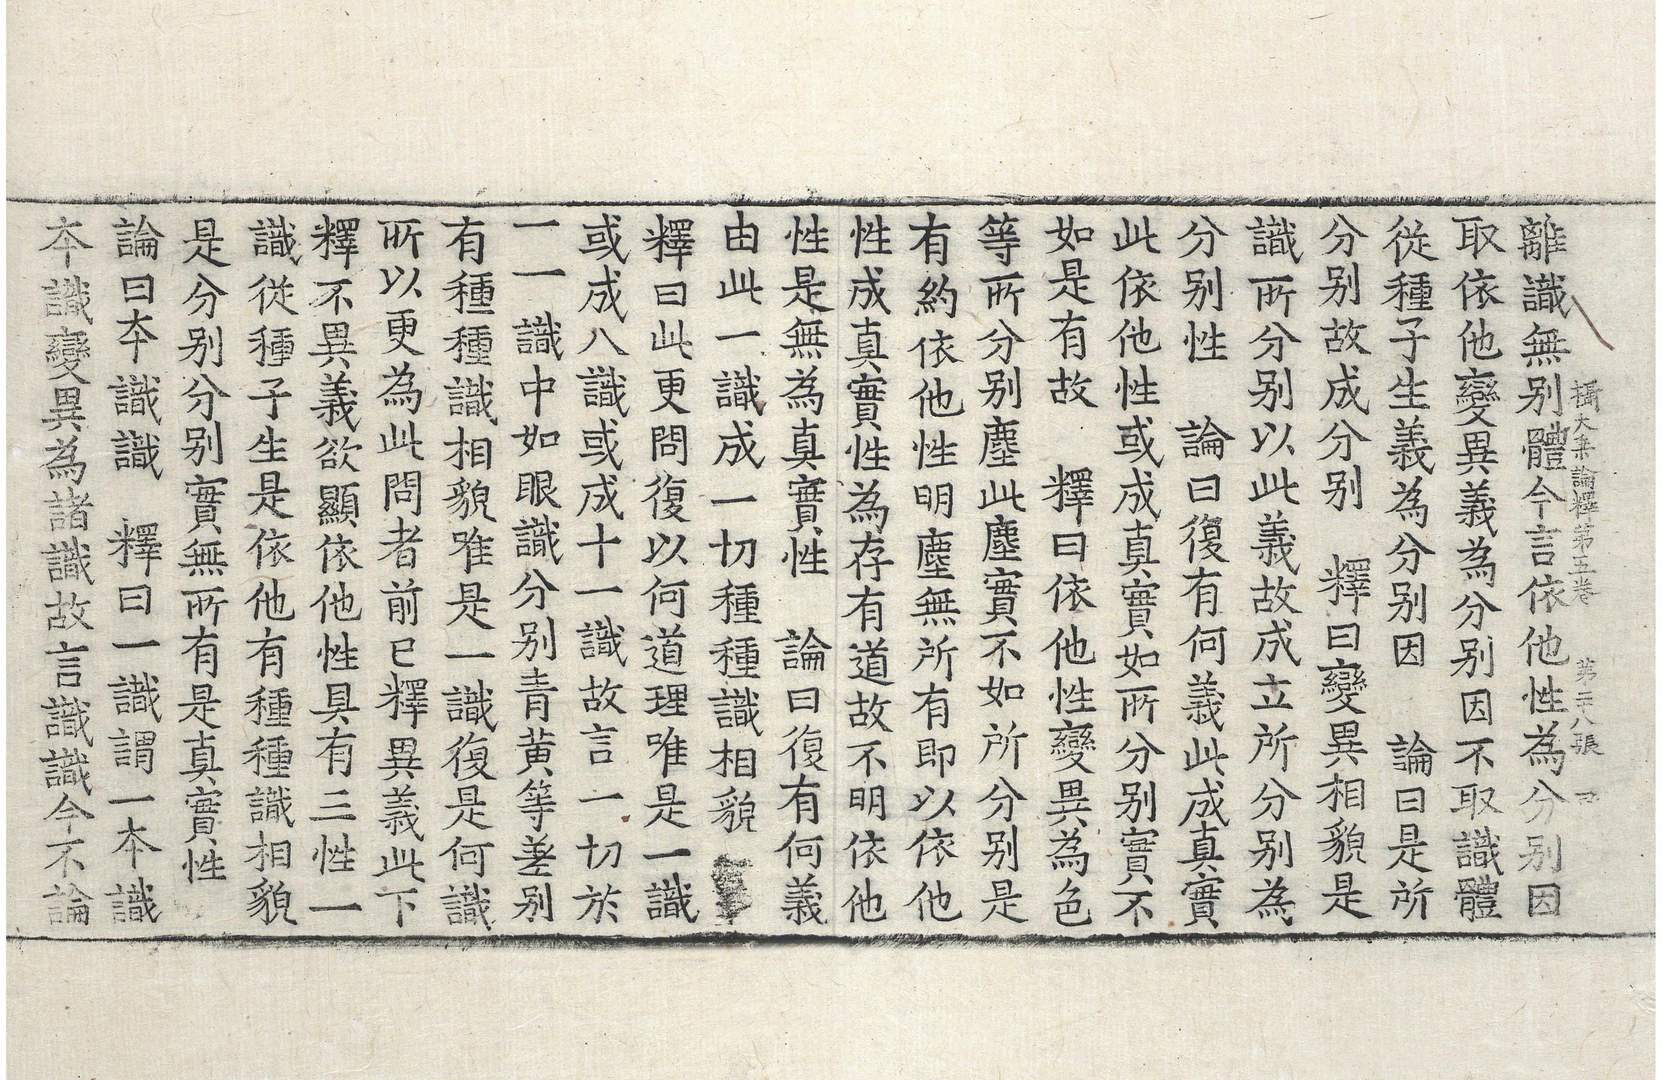 攝大乗論釋第五卷　第二十八張
離識無别體今言依他性為分别因
取依他變異義為分别因不取識體
從種子生義為分别因　論曰是所
分别故成分别　釋曰變異相貌是
識所分别以此義故成立所分别為
分别性　論曰復有何義此成真實
此依他性或成真實如所分别實不
如是有故　釋曰依他性變異為色
等所分别塵此塵實不如所分别是
有約依他性明塵無所有即以依他
性成真實性為存有道故不明依他
性是無為真實性　論曰復有何義
由此一識成一切種種識相貌
釋曰此更問復以何道理唯是一識
或成八識或成十一識故言一切於
一一識中如眼識分别青黄等差别
有種種識相貌唯是一識復是何識
所以更為此問者前已釋異義此下
釋不異義欲顯依他性具有三性一
識從種子生是依他有種種識相貌
是分别分别實無所有是真實性
論曰夲識識　釋曰一識謂一夲識
夲識變異為諸識故言識識今不論